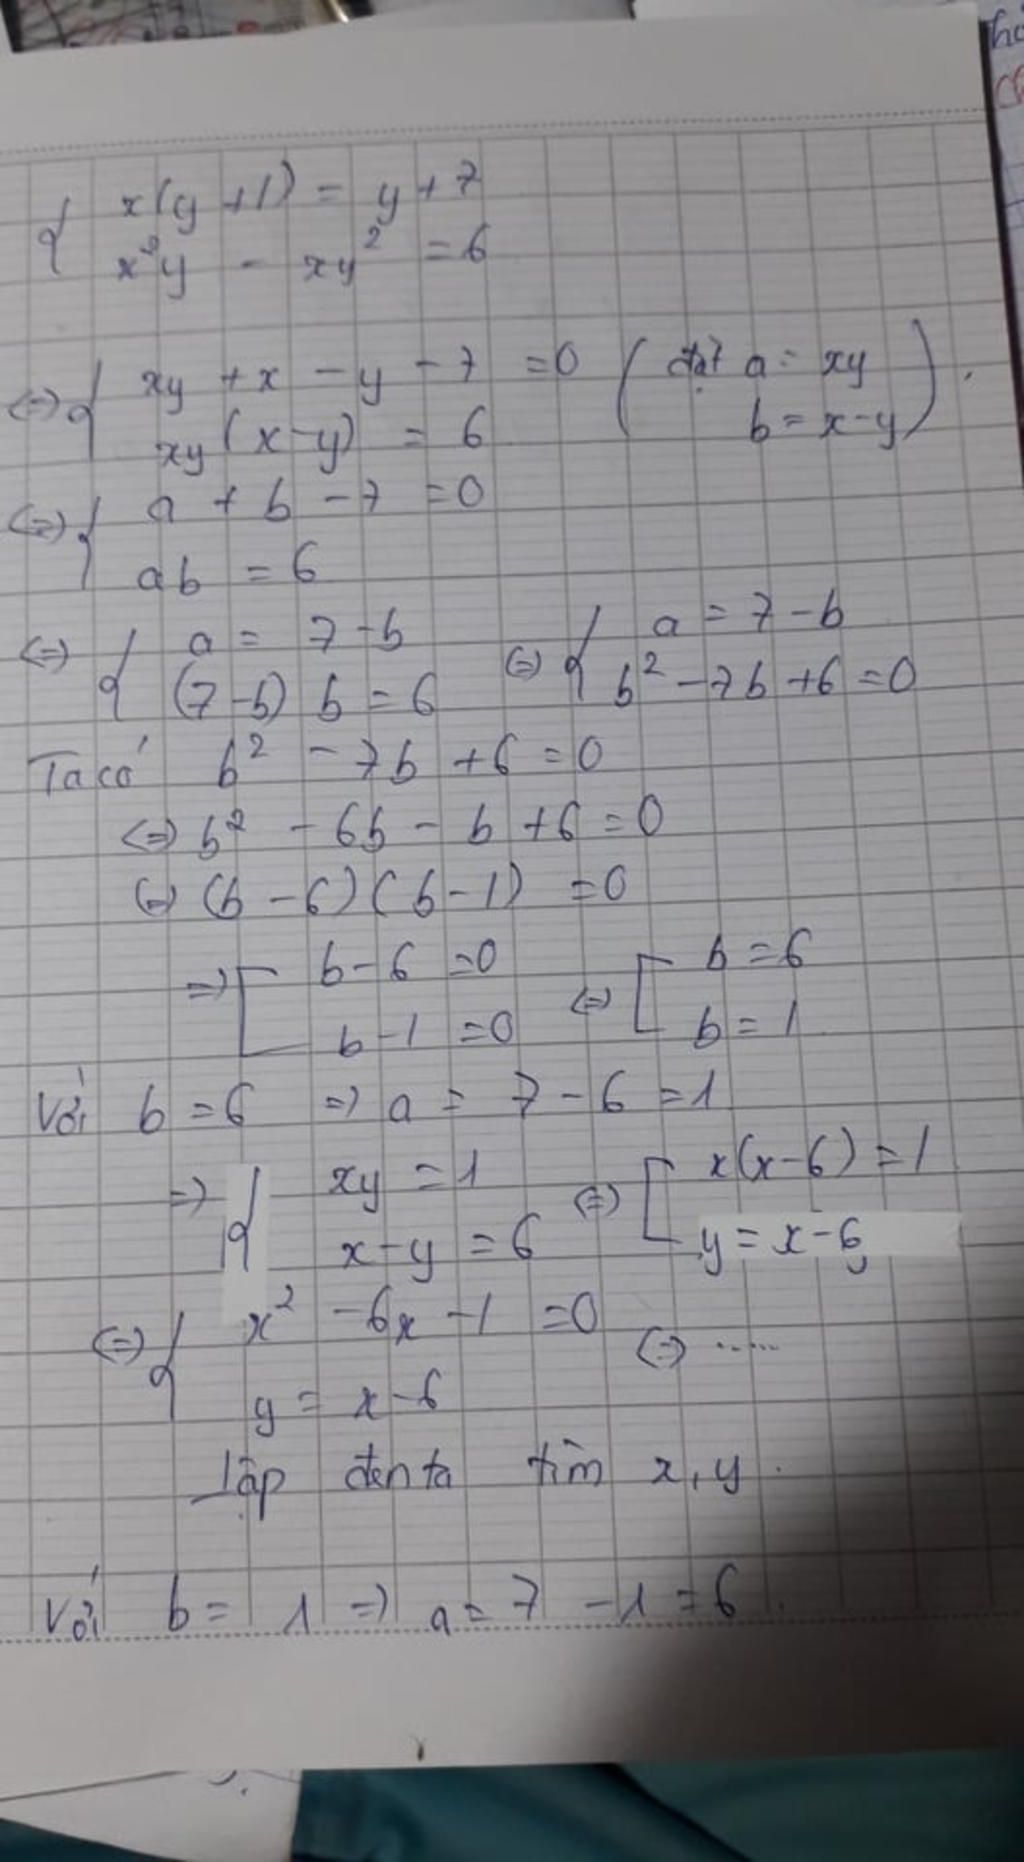 { x(y+1) = y+7
x²y - xy² = 6
<=> { xy + x - y - 7 = 0 ( đặt a = xy
xy(x-y) = 6 b = x-y ).
<=> { a + b - 7 = 0
ab = 6
<=> { a = 7-b <=> { a = 7-b
(7-b) b = 6 b² - 7b + 6 = 0
Ta có b² - 7b + 6 = 0
<=> b² - 6b - b + 6 = 0
<=> (b-6)(b-1) = 0
=> [ b-6 = 0 <=> [ b = 6
b-1 = 0 b = 1
Với b = 6 => a = 7-6 = 1
=> { xy = 1 <=> [ x(x-6) = 1
x-y = 6 y = x-6
<=> { x² - 6x - 1 = 0 <=> ......
y = x-6
lập đenta tìm x, y.
Với b = 1 => a = 7-1 = 6.